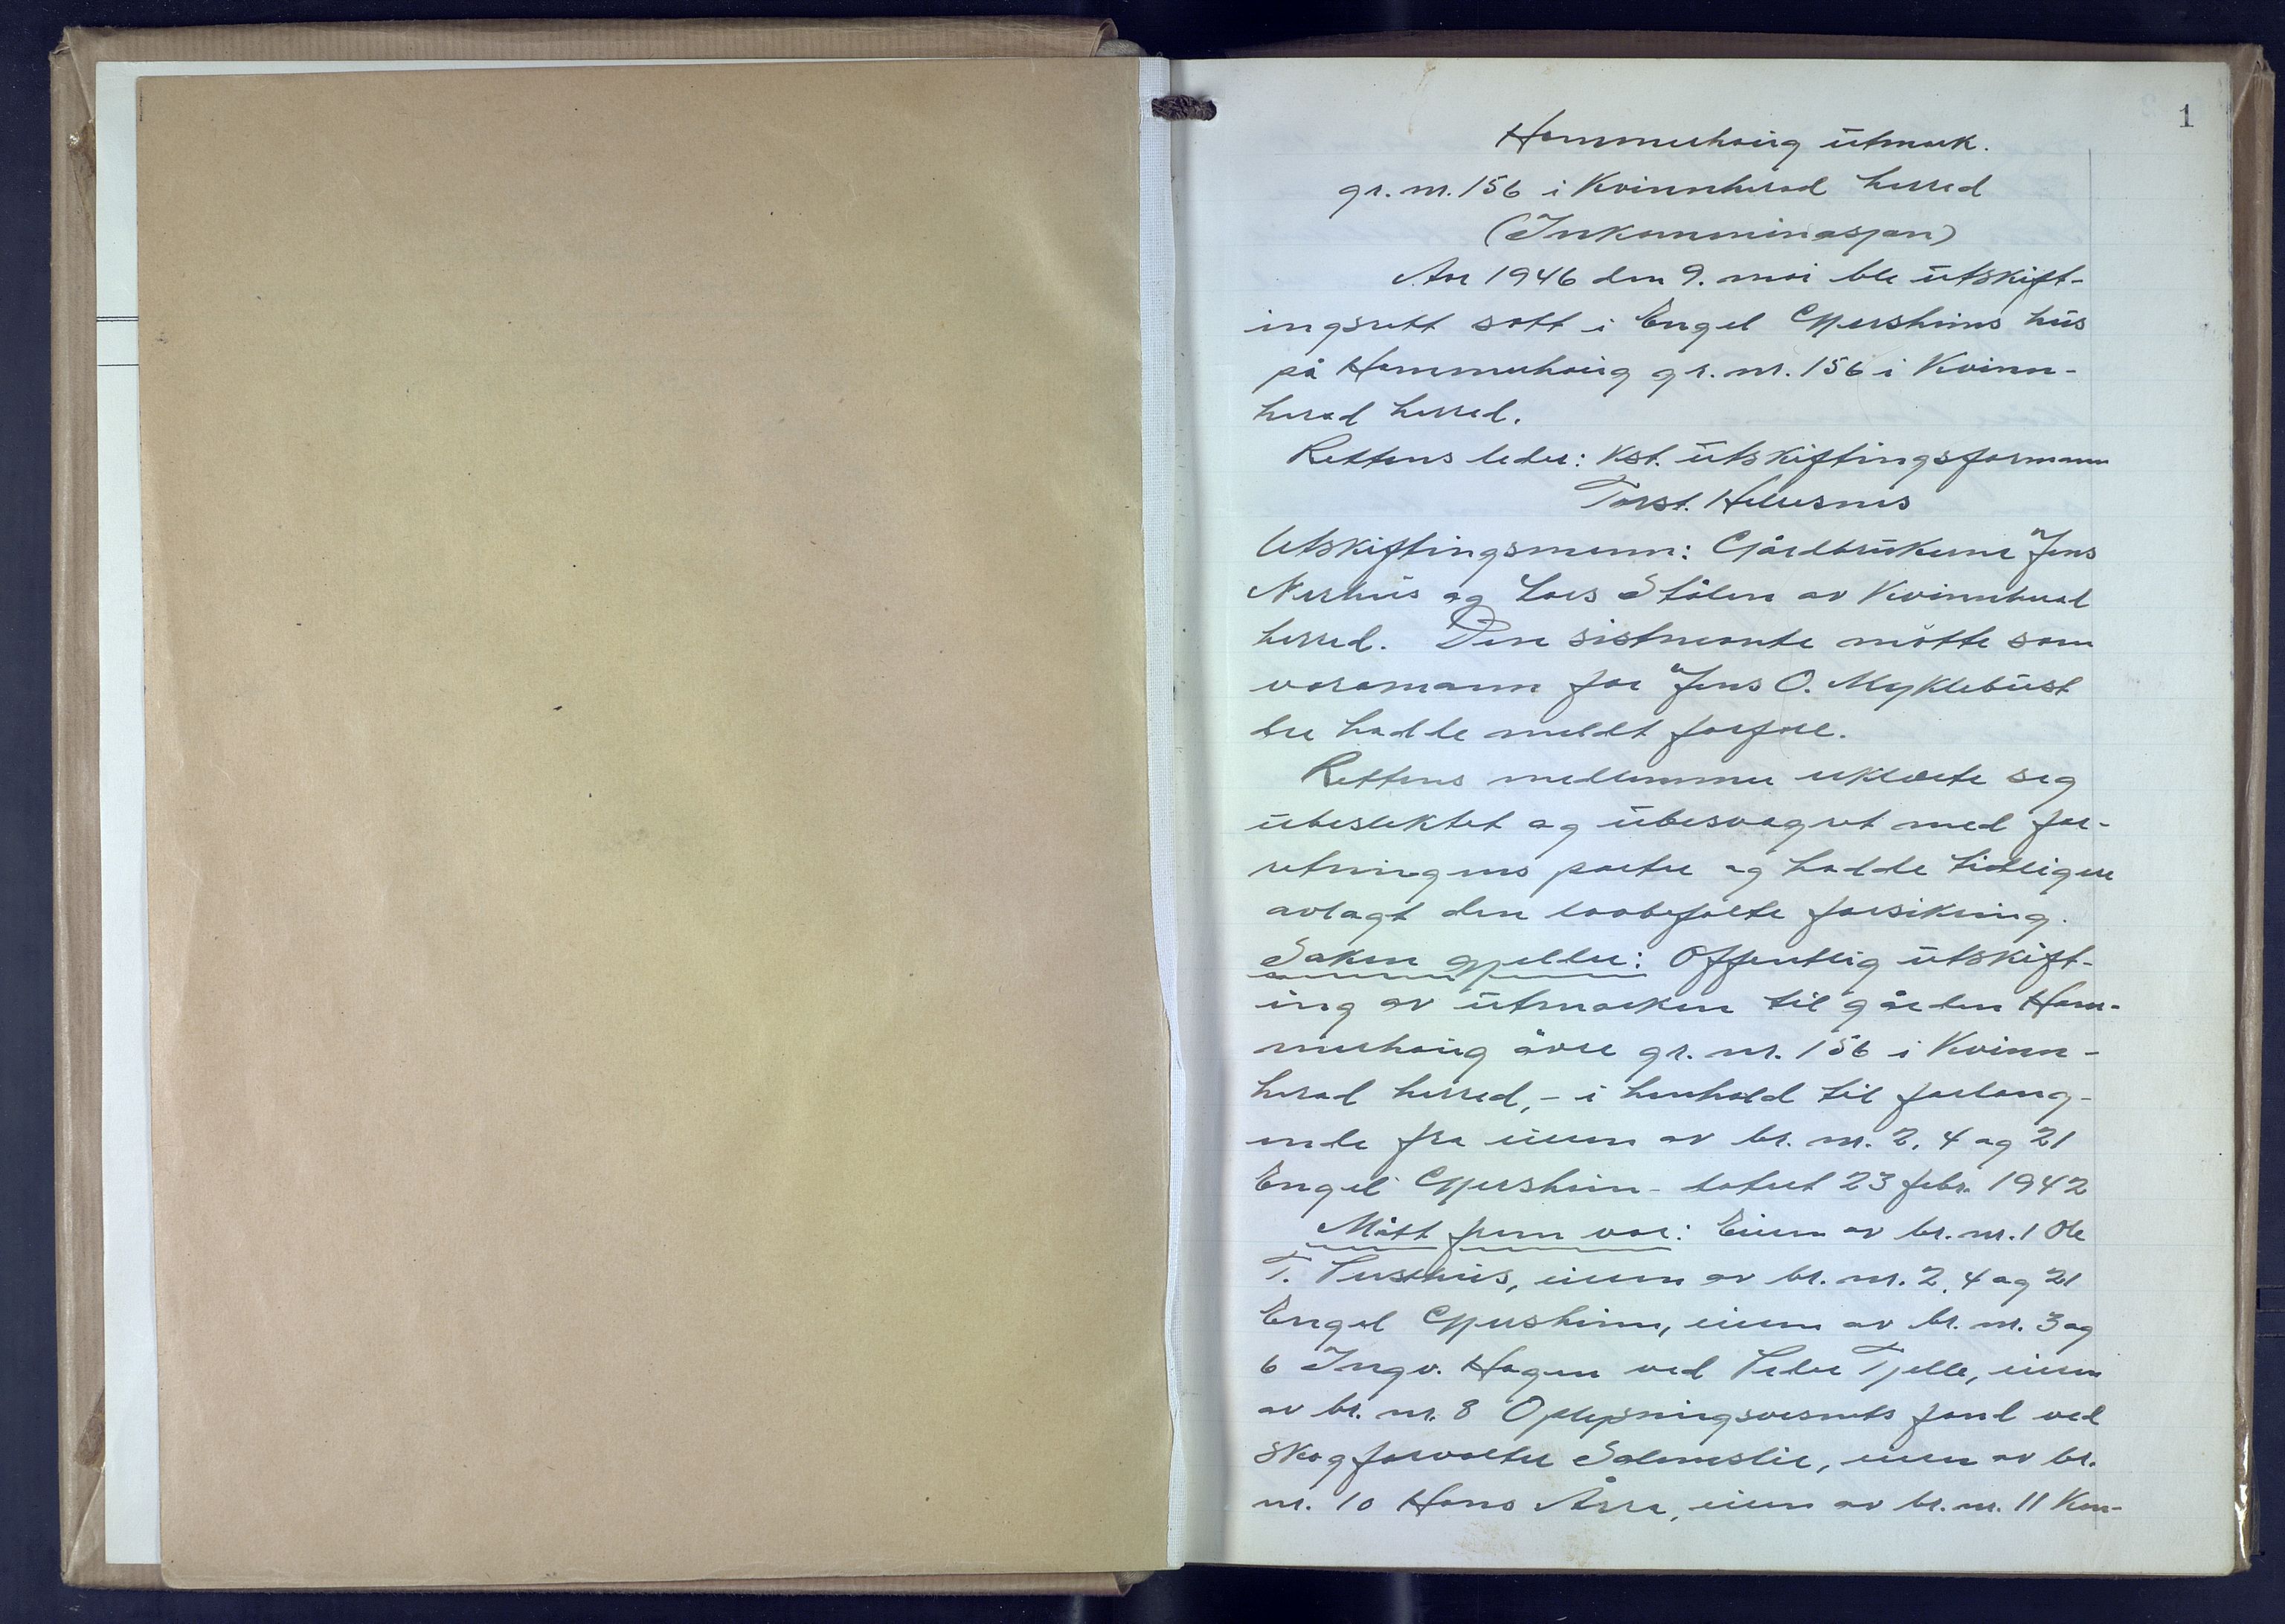 1
Hammerhaug utmark.
gr. nr. 156 i Kvinnherad herred
(Inkamminasjon)
Aar 1946 den 9. mai ble utskift-
ingsrett satt i Engel Gjersheims hus
på Hammerhaug gr. nr. 156 i Kvinn-
herad herred.
Rettens leder: Kst. utskiftingsformann
Torst. Hellesnes
Utskiftingsmenn: Gårdbrukerne Jens
Nerhus og Lars Stålen av Kvinnherad
herred. Den sistnevnte møtte som
varamann for Jens O. Myklebust
der hadde meldt forfall.
Rettens medlemmer erklærte seg
ubeslektet og ubesvogret med for-
retningens parter og hadde tidligere
avlagt den lovbefalte forsikring.
Saken gjeller: Offentlig utskift-
ing av utmarken til gården Ham-
merhaug övre gr. nr. 156 i Kvinn-
herad herred, - i henhold til forlang-
ende fra eieren av br. nr. 2, 4 og 21
Engel Gjersheim - datert 23 febr. 1942
Møtt frem var: Eieren av br. nr. 1 Ole
T. Nershus, eieren av br. nr. 2, 4 og 21
Engel Gjersheim, eieren av br. nr. 3 og
6 Ingv. Hagen ved Peder Tjelle, eieren
av br. nr. 8 Oplysningsvesnets fond ved
skogforvalter Salmeslie, eieren av br.
nr. 10 Hans Årra, eieren av br. nr. 11 Kon-